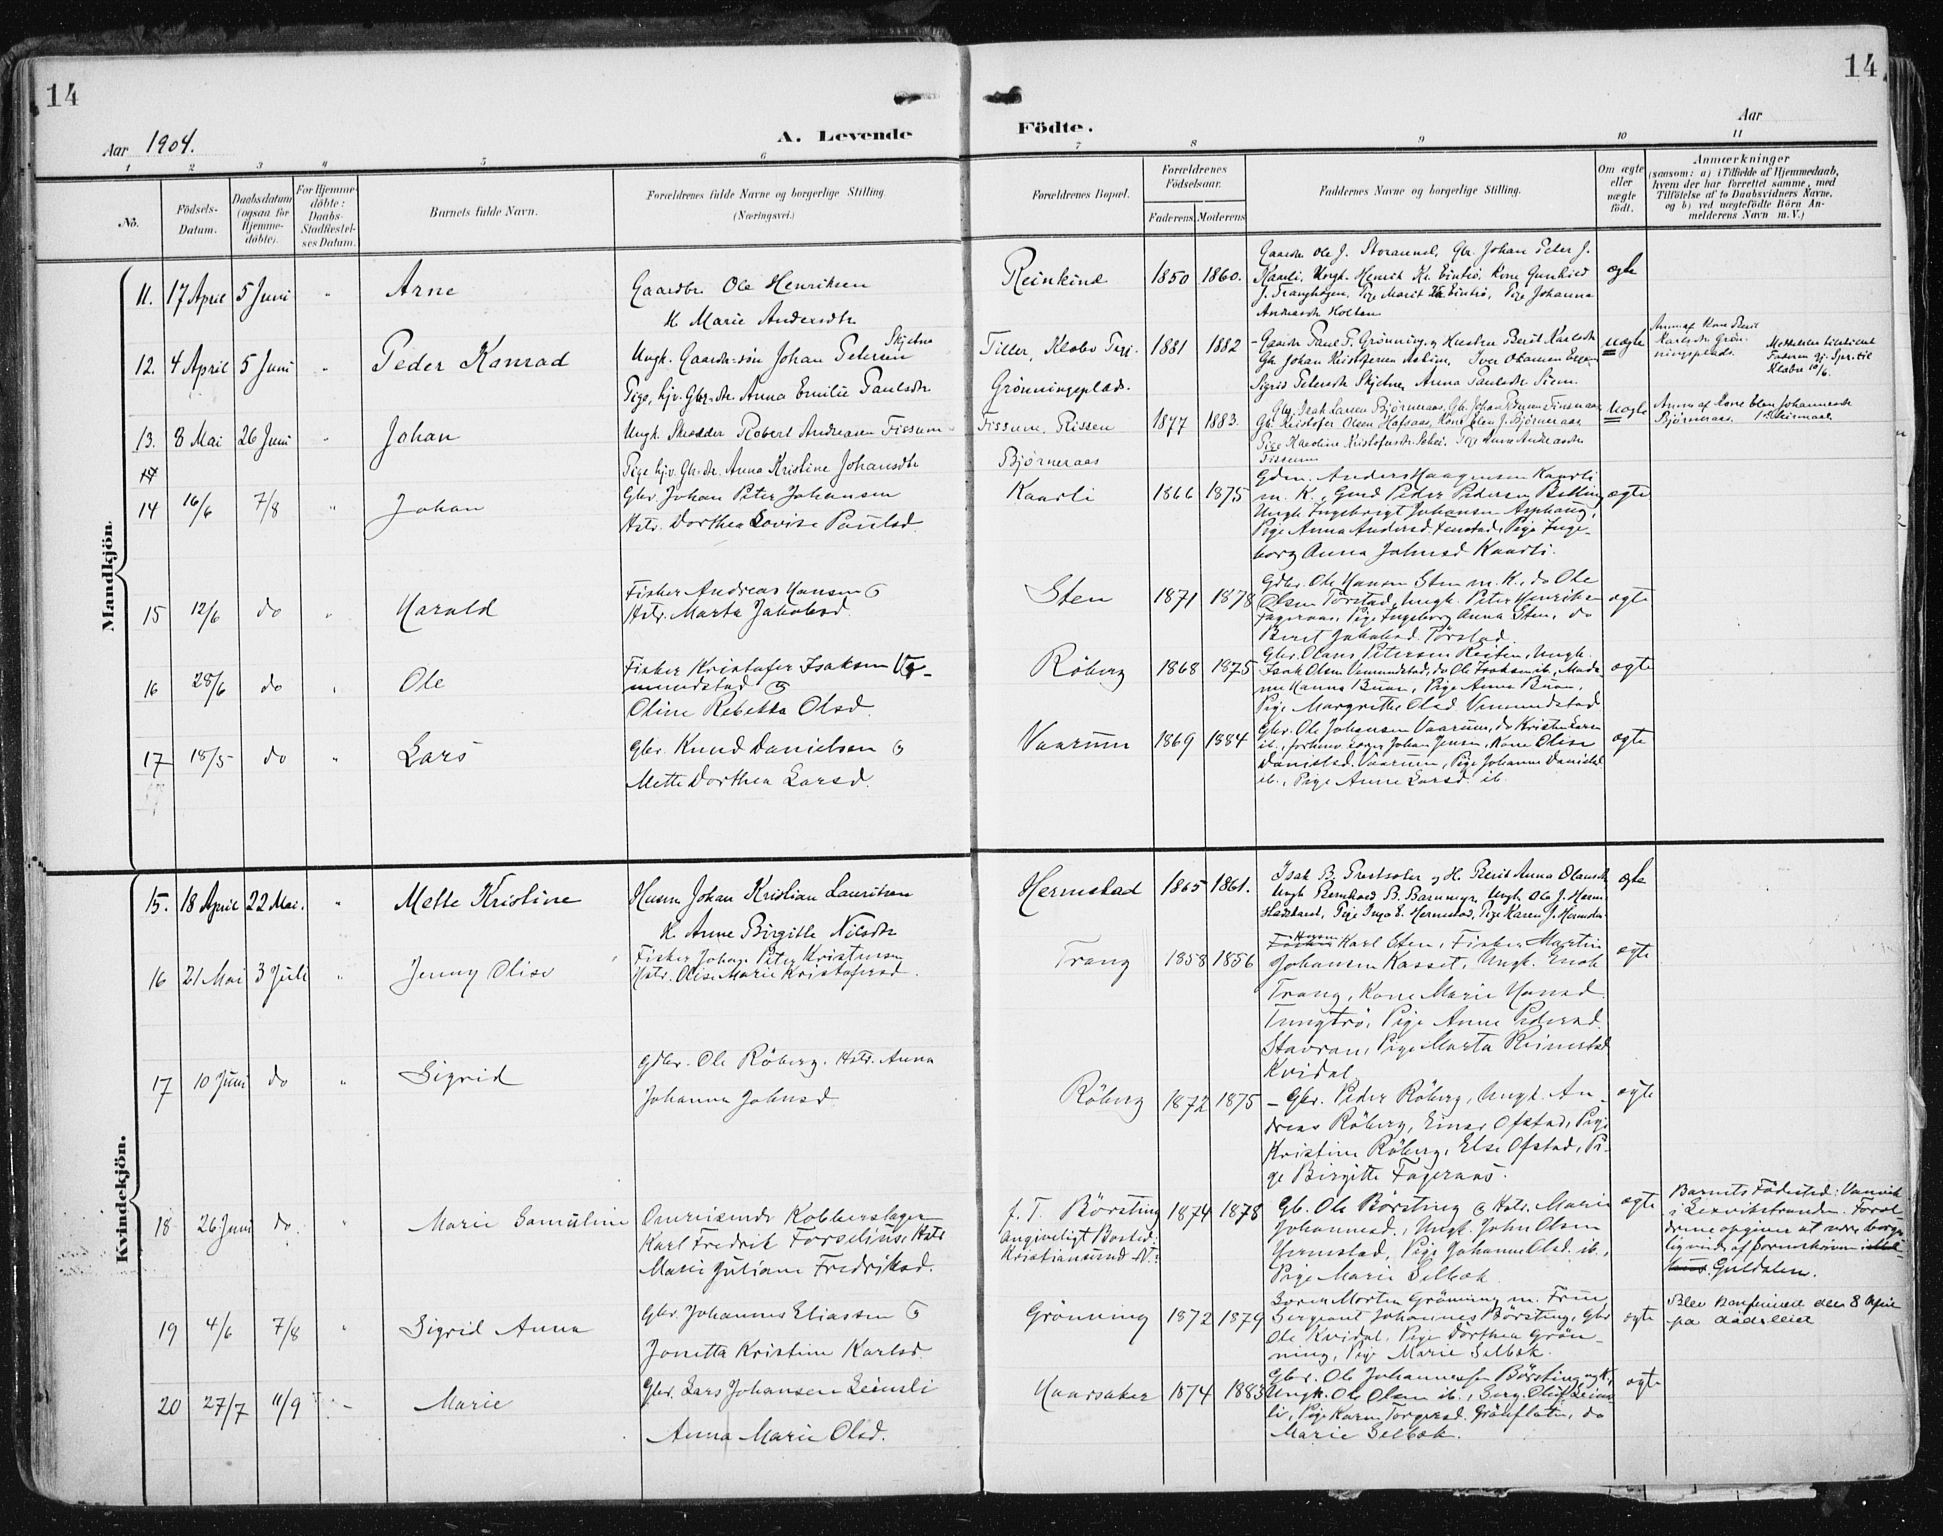 14
14
Aar 1904.
A. Levende
Födte.
Aar
1 2 3 4 5 6 7 8 9 10 11
No.
Födsels-
Datum.
Daabsdatum
(ogsaa for
Hjemme-
döbte).
For Hjemme-
döbte:
Daabs-
Stadfæstel-
ses Datum.
Barnets fulde Navn.
Forældrenes fulde Navne og borgerlige Stilling.
(Næringsvei.)
Forældrenes Bopæl.
Forældrenes
Födselsaar.
Faderens Moderens
Faddernes Navne og borgerlige Stilling.
Om ægte
eller
uægte
födt.
Anmærkninger
(saasom: a) i Tilfælde af Hjemmedaab,
hvem der har forrettet samme, med
Tilföielse af to Daabsvidners Navne,
og b) ved uægtefödte Börn An-
melderens Navn m. V.)
Mandkjön.
11. 17 April 5 Juni " Arne
Gaardbr. Ole Henriksen
K. Marie Andersdtr
Reinkind 1850 1860.
Gaardbr Ole J. Storaunet, Gbr Johan Peter J.
Kaarli, Ungk. Henrik
Pige Johanna
Andreasdtr Holten
ægte
12. 4 April 5 Juni " Peder Konrad
Ungk. Gaardbr.søn Johan Petersen Skjetne
Pige, hjv. Gbr.dtr Anna Emilie Paulsdtr
Tiller, Klæbo Prgj. 1881 1882
Grønningsplads.
Gaardbr Paul F. Grønning, og Hustru Berit Karlsdtr
Sigrid Petersdtr Skjetne, Anna Paulsdtr Siem.
uægte
Anm af Kone Berit
Karlsdtr Grøn-
ningsplads.
Klæbo 10/6.
13. 8 Mai 26 Juni " Johan
Ungk. Skrædder Robert Andreasen Fissum
Pige hjv. Gbr.dtr. Anna Kristine Johansdtr
Fissum, Rissen 1877 1883.
Bjørneraas
Gbr. Isak Larsen Bjørneraas, Gbr. Johan
Gbr. Kristofer Olsen Hafsaas, Kone Elen J. Bjørneraas
Pige Karoline Kristofersdtr
Fissum
uægte
Anm af Kone Elen Johannesdtr
Bjørneraas.
14 16/6 7/8 " Johan
Gbr. Johan Peter Johansen
Hstr. Dorthea Lovise Paulsd.
Kaarli 1866 1875
Gdm. Anders Haagensen Kaarli
m. K., Gmd Peder Pedersen Belling,
Ungk. Ingebrigt Johansen Asphaug,
Pige Anna Andersd. Fenstad, Pige Inge-
borg Anna Johnsd Kaarli.
ægte
15 12/6 do " Harald
Fisker Andreas Hansen &
Hstr. Marta Jakobsd.
Sten 1871 1878
Gdbr. Ole Hansen Sten m. K., do Ole
Olsen Torstad, Ungk. Peter Henriksen
Fageraas, Pige Ingeborg Anna Sten, do
Beret Jakobsd. Torstad.
ægte
16 28/6 do " Ole
Fisker Kristofer Isaksen Ve-
mundstad &
Oline Rebekka Olsd.
Röberg 1868 1875
Gbr. Olaus Petersen Reiten, Ungk.
Isak Olsen Vemundstad, do Ole Isaksen ib., Mada-
me Hanna Buan, Pige Anna Buan,
Pige Margrethe Olsd Vemundstad
ægte
17 18/5 do " Lars
Gbr. Knud Danielsen &
Mette Dorthea Larsd.
Vaarum 1869 1884
Gbr. Ole Johansen Vaarum, do Kristen Larsen
ib., Johan Jensen, Kone Olise
Danielsd. Vaarum, Pige Johanna Danielsd
ib., Pige Anne Larsd. ib.
ægte
Kvindekjön.
15. 18 April 22 Mai. " Mette Kristine
Husm Johan Kristian Lauritsen
K. Anne Birgitte Nilsdtr
Hermstad 1865 1861.
Isak B. Prestsæter og H. Berit Anna Olausdtr
Ungk Bernhard B. Ungk Ole J. Herm-
stad, Pige Inga E. Hermstad, Pige Karen J. Hermstad
ægte
16 21 Mai 3 Juli " Jenny Olise
Fisker Johan Peter Kristensen
Hstr. Olise Marie Kristofersd.
Trang 1858 1856
Karl Sten, Fisker Martin
Johansen Kasset, Ungk. Enok
Trang, Kone Marie Hansd.
Tungtrö, Pige Anne Pedersd.
Stavran, Pige Marta Reinstad
Kvidal.
ægte
17 10 Juni do " Sigrid
Gdbr. Ole Röberg. Hstr. Anna
Johanna Johnsd.
Röberg 1872 1875
Gbr. Peder Röberg, Ungk. An-
dreas Röberg, Einar Ofstad, Pige
Kristine Röberg, Else Ofstad, Pi-
ge Birgitte Fageraas.
ægte
18 26 Juni do. " Marie Samuline
Omreisende Kobberslager
Karl Fredrik Forselius, Hstr
Marie Juliane Fredriksd.
f. T. Börsting 1874 1878
Angiveligt Bosted:
Kristiansund N.
Gb. Ole Börsting & Hstr. Marie
Johannesd., Ungk. John Olsen
Hermstad, Pige Johanne Olsd. ib.,
Pige Marie Selbæk.
ægte
Barnets Födested: Vanvik
i Lexvikstranden. Foræl-
drene opgiver at være borg-
lig viede af
Guldalen.
19 4/6 7/8 " Sigrid Anna
Gbr. Johannes Eliassen &
Jonetta Kristine Karlsd.
Grönning 1872 1879
Morten Grönning m. Frue,
Sergeant Johannes Börsting, Gbr
Ole Kvidal, Pige Dorthea Grön-
ning, Pige Marie Selbæk.
ægte
Blev den 8 April
paa
20 27/7 11/9 Marie
Gbr. Lars Johansen Leinsli
Anna Marie Olsd.
Haarsaker 1874 1883
Gbr. Ole Johannessen Börsting og K.,
Ungk. Ole Olsen ib., Serg. Oluf Leins-
li, Pige Karen Torgersd. Grönflaten, do
Marie Selbæk.
ægte